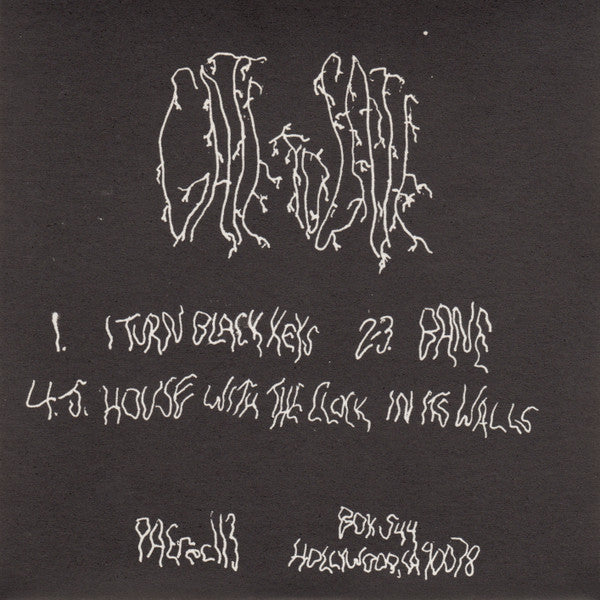 1. I TURN BLACK KEYS 2.3. BANE
4.5. HOUSE WITH THE CLOCK IN ITS WALLS
PACrec113
BOX 544
HOLLYWOOD, CA 90078